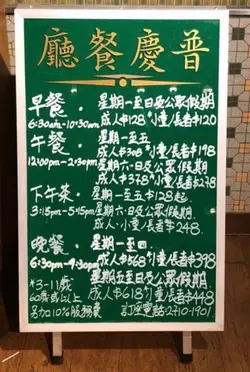 普慶餐廳
早餐・星期一至日及公眾假期
6:30am-10:30am 成人$128 小童/長者$120
午餐・星期一至五
12:00pm-2:30pm 成人$308 小童/長者$198
星期六日及公眾假期
成人$378 小童/長者$278
下午茶・星期一至五$128起
3:15pm-5:15pm 星期六.日及公眾假期
成人・小童/長者$248
晚餐・星期一至四
6:30pm-9:30pm 成人$568 小童/長者$398
星期五至日及公眾假期
*3-11歲 成人$618 小童/長者$448
60歲或以上
另加10%服務費 訂座電話:2710-1901